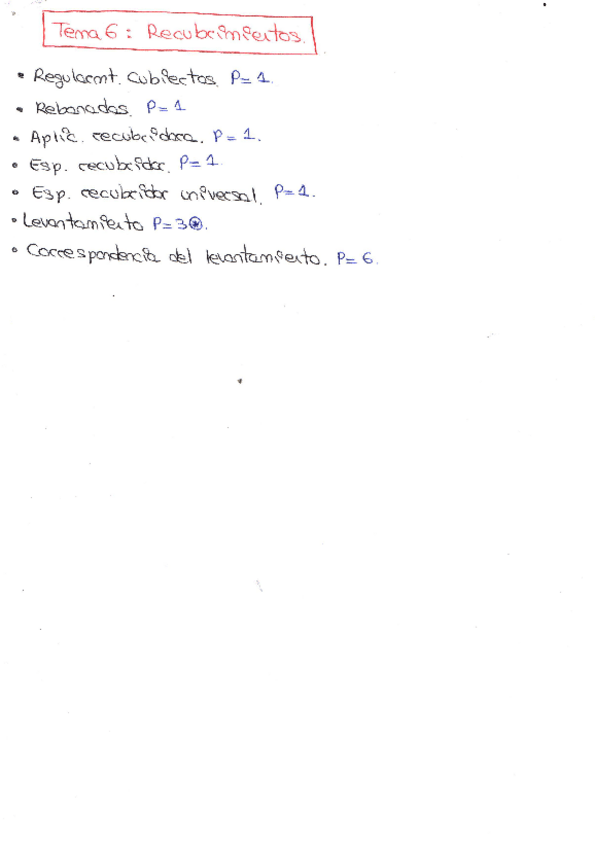 Tema 6: Recubrimientos.
• Regularmt. Cubiertos P=1.
• Rebanadas. P=1
• Aplic. recubridora. P=1.
• Esp. recubridor. P=1
• Esp. recubridor universal. P=1.
• Levantamiento P=3⊛.
• Correspondencia del levantamiento. P=6.